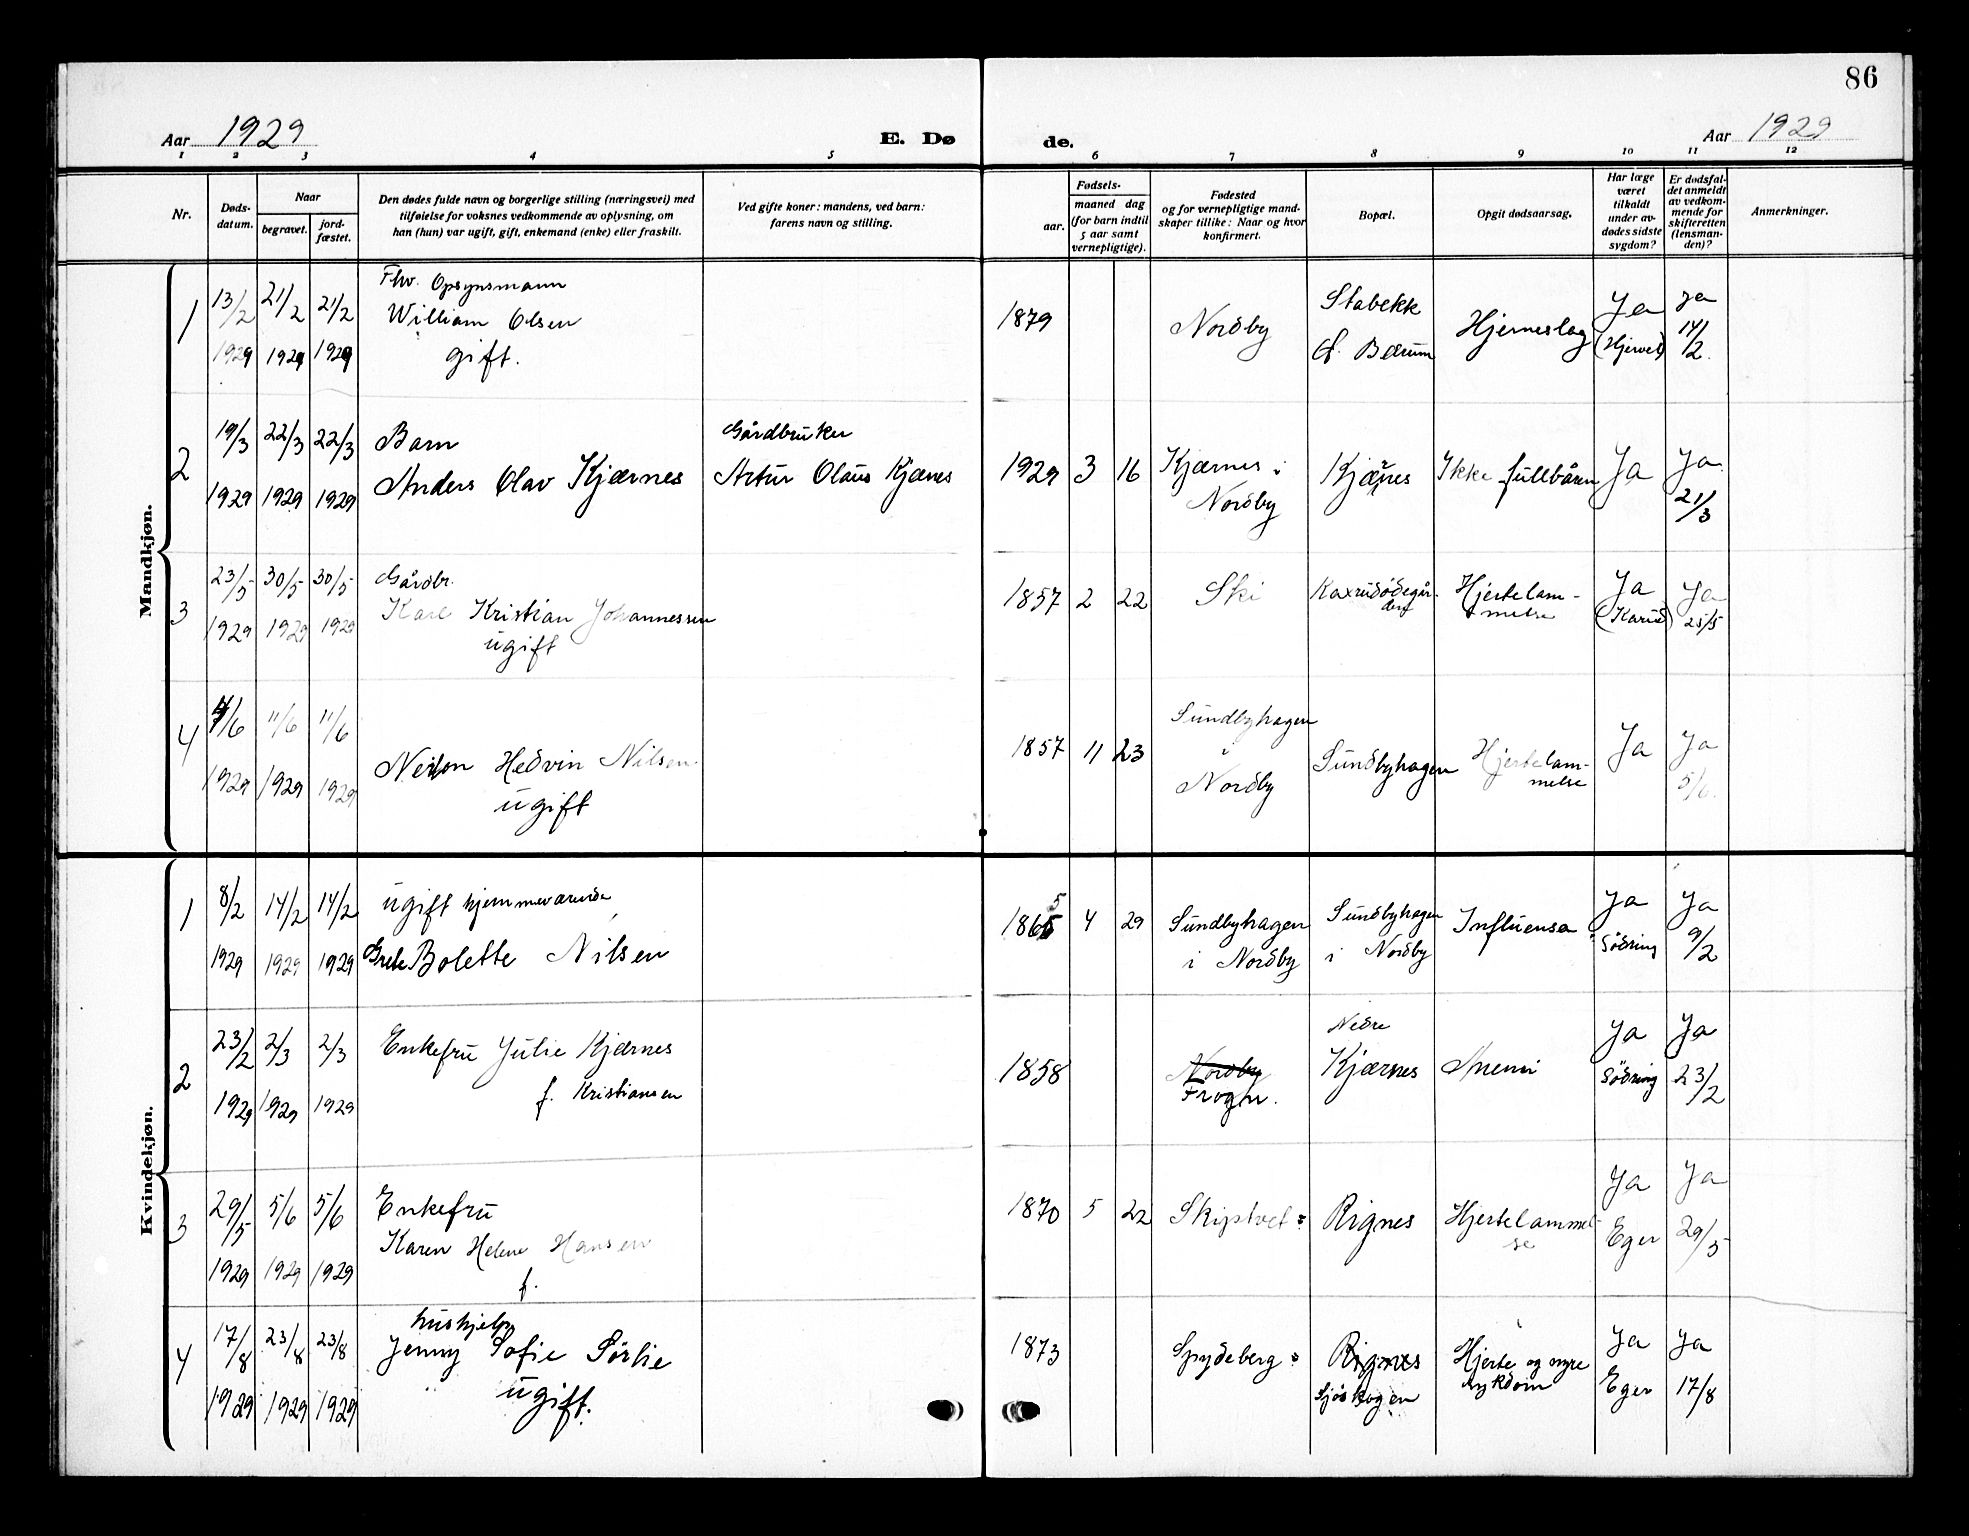 86
Aar 1929
E. Dø
de.
Aar 1929
1 2 3 4 5 6 7 8 9 10 11 12
Nr.
Døds-
datum.
Naar
begravet.
jord-
fæstet.
Den dødes fulde navn og borgerlige stilling (næringsvei) med
tilføielse for voksnes vedkommende av oplysning, om
han (hun) var ugift, gift, enkemand (enke) eller fraskilt.
Ved gifte koner: mandens, ved barn:
farens navn og stilling.
Fødsels-
aar.
maaned dag
(for barn indtil
5 aar samt
vernepligtige).
Fødested
og for vernepligtige mand-
skaper tillike: Naar og hvor
konfirmert.
Bopæl.
Opgit dødsaarsag.
Har læge
været
tilkaldt
under av-
dødes sidste
sygdom?
Er dødsfal-
det anmeldt
av vedkom-
mende for
skifteretten
(lensman-
den)?
Anmerkninger.
Mandkjøn.
1
13/2 1929
21/2 1929
21/2 1929
Fhv. Opsynsmann
William Olsen
gift.
1879
Nordby
Stabekk
Bærum
Hjerneslag
Ja
Ja
14/2.
2
19/3 1929
22/3 1929
22/3 1929
Barn
Anders Olav Kjærnes
Gårdbruker
Artur Olaus Kjænes
1929 3 16
Kjærnes i
Nordby
Kjærnes
Ikke fullbåren
Ja
Ja
21/3
3
23/5 1929
30/5 1929
30/5 1929
Gårdbr.
Karl Kristian Johannessen
ugift
1857 2 22
Ski
Hjertelam-
melse
Ja
Ja
4
4/6 1929
11/6 1929
11/6 1929
Hedvin Nilsen
ugift
1857 11 23
Sundbyhagen
i
Nordby
Sundbyhagen
Hjertelam-
melse
Ja
Ja
5/6.
Kvindekjøn.
1
8/2 1929
14/2 1929
14/2 1929
ugift hjemmeværende
Grete Bolette Nilsen
1865 4 29
Sundbyhagen
i Nordby
Sundbyhagen
i Nordby
Influensa
Ja
Södring
Ja
9/2
2
23/2 1929
2/3 1929
2/3 1929
Enkefru Julie Kjærnes
f. Kristiansen
1858
Nordby
Frogn.
Nedre
Kjærnes
Anemi
Ja
Södring
Ja
23/2
3
29/5 1929
5/6 1929
5/6 1929
Enkefru
Karen Helene Hansen
f.
1870 5 22
Skiptvet
Rignes
Hjertelammel-
se
Ja
Eger
Ja
29/5
4
17/8 1929
23/8 1929
23/8 1929
hushjelp
Jenny Sofie Sörlie
ugift.
1873
Spydeberg
Rignes
Sjöskogen
Hjerte og nyre
sykdom
Ja
Eger
Ja
17/8